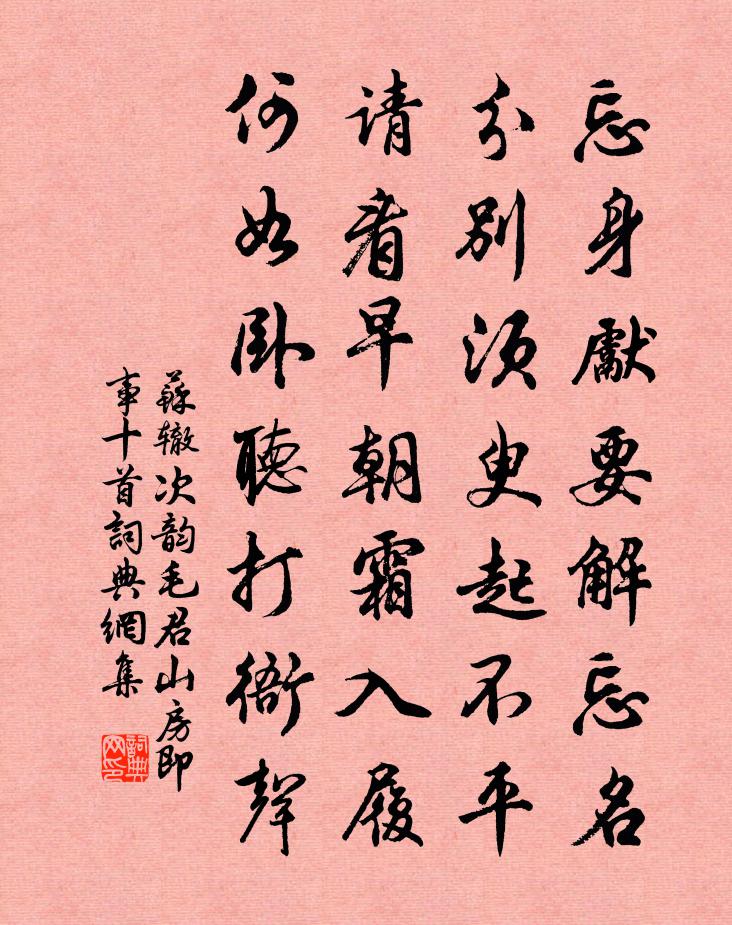 忘身獻要解忘名
分别须臾起不平
请看早朝霜入履
何如卧聽打衙聲
蘇辙次韵毛君山房即
事十首詞典網集
詞典
网印